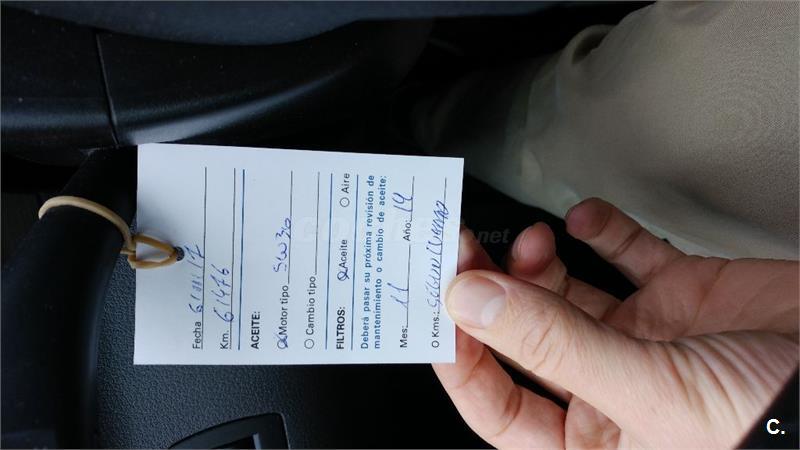 Fecha
Km. 61476
ACEITE:
Motor tipo 5W30
Cambio tipo
FILTROS: Aceite Aire
Deberá pasar su próxima revisión de
mantenimiento o cambio de aceite:
Mes: 11 Año:
O Kms.:
C.